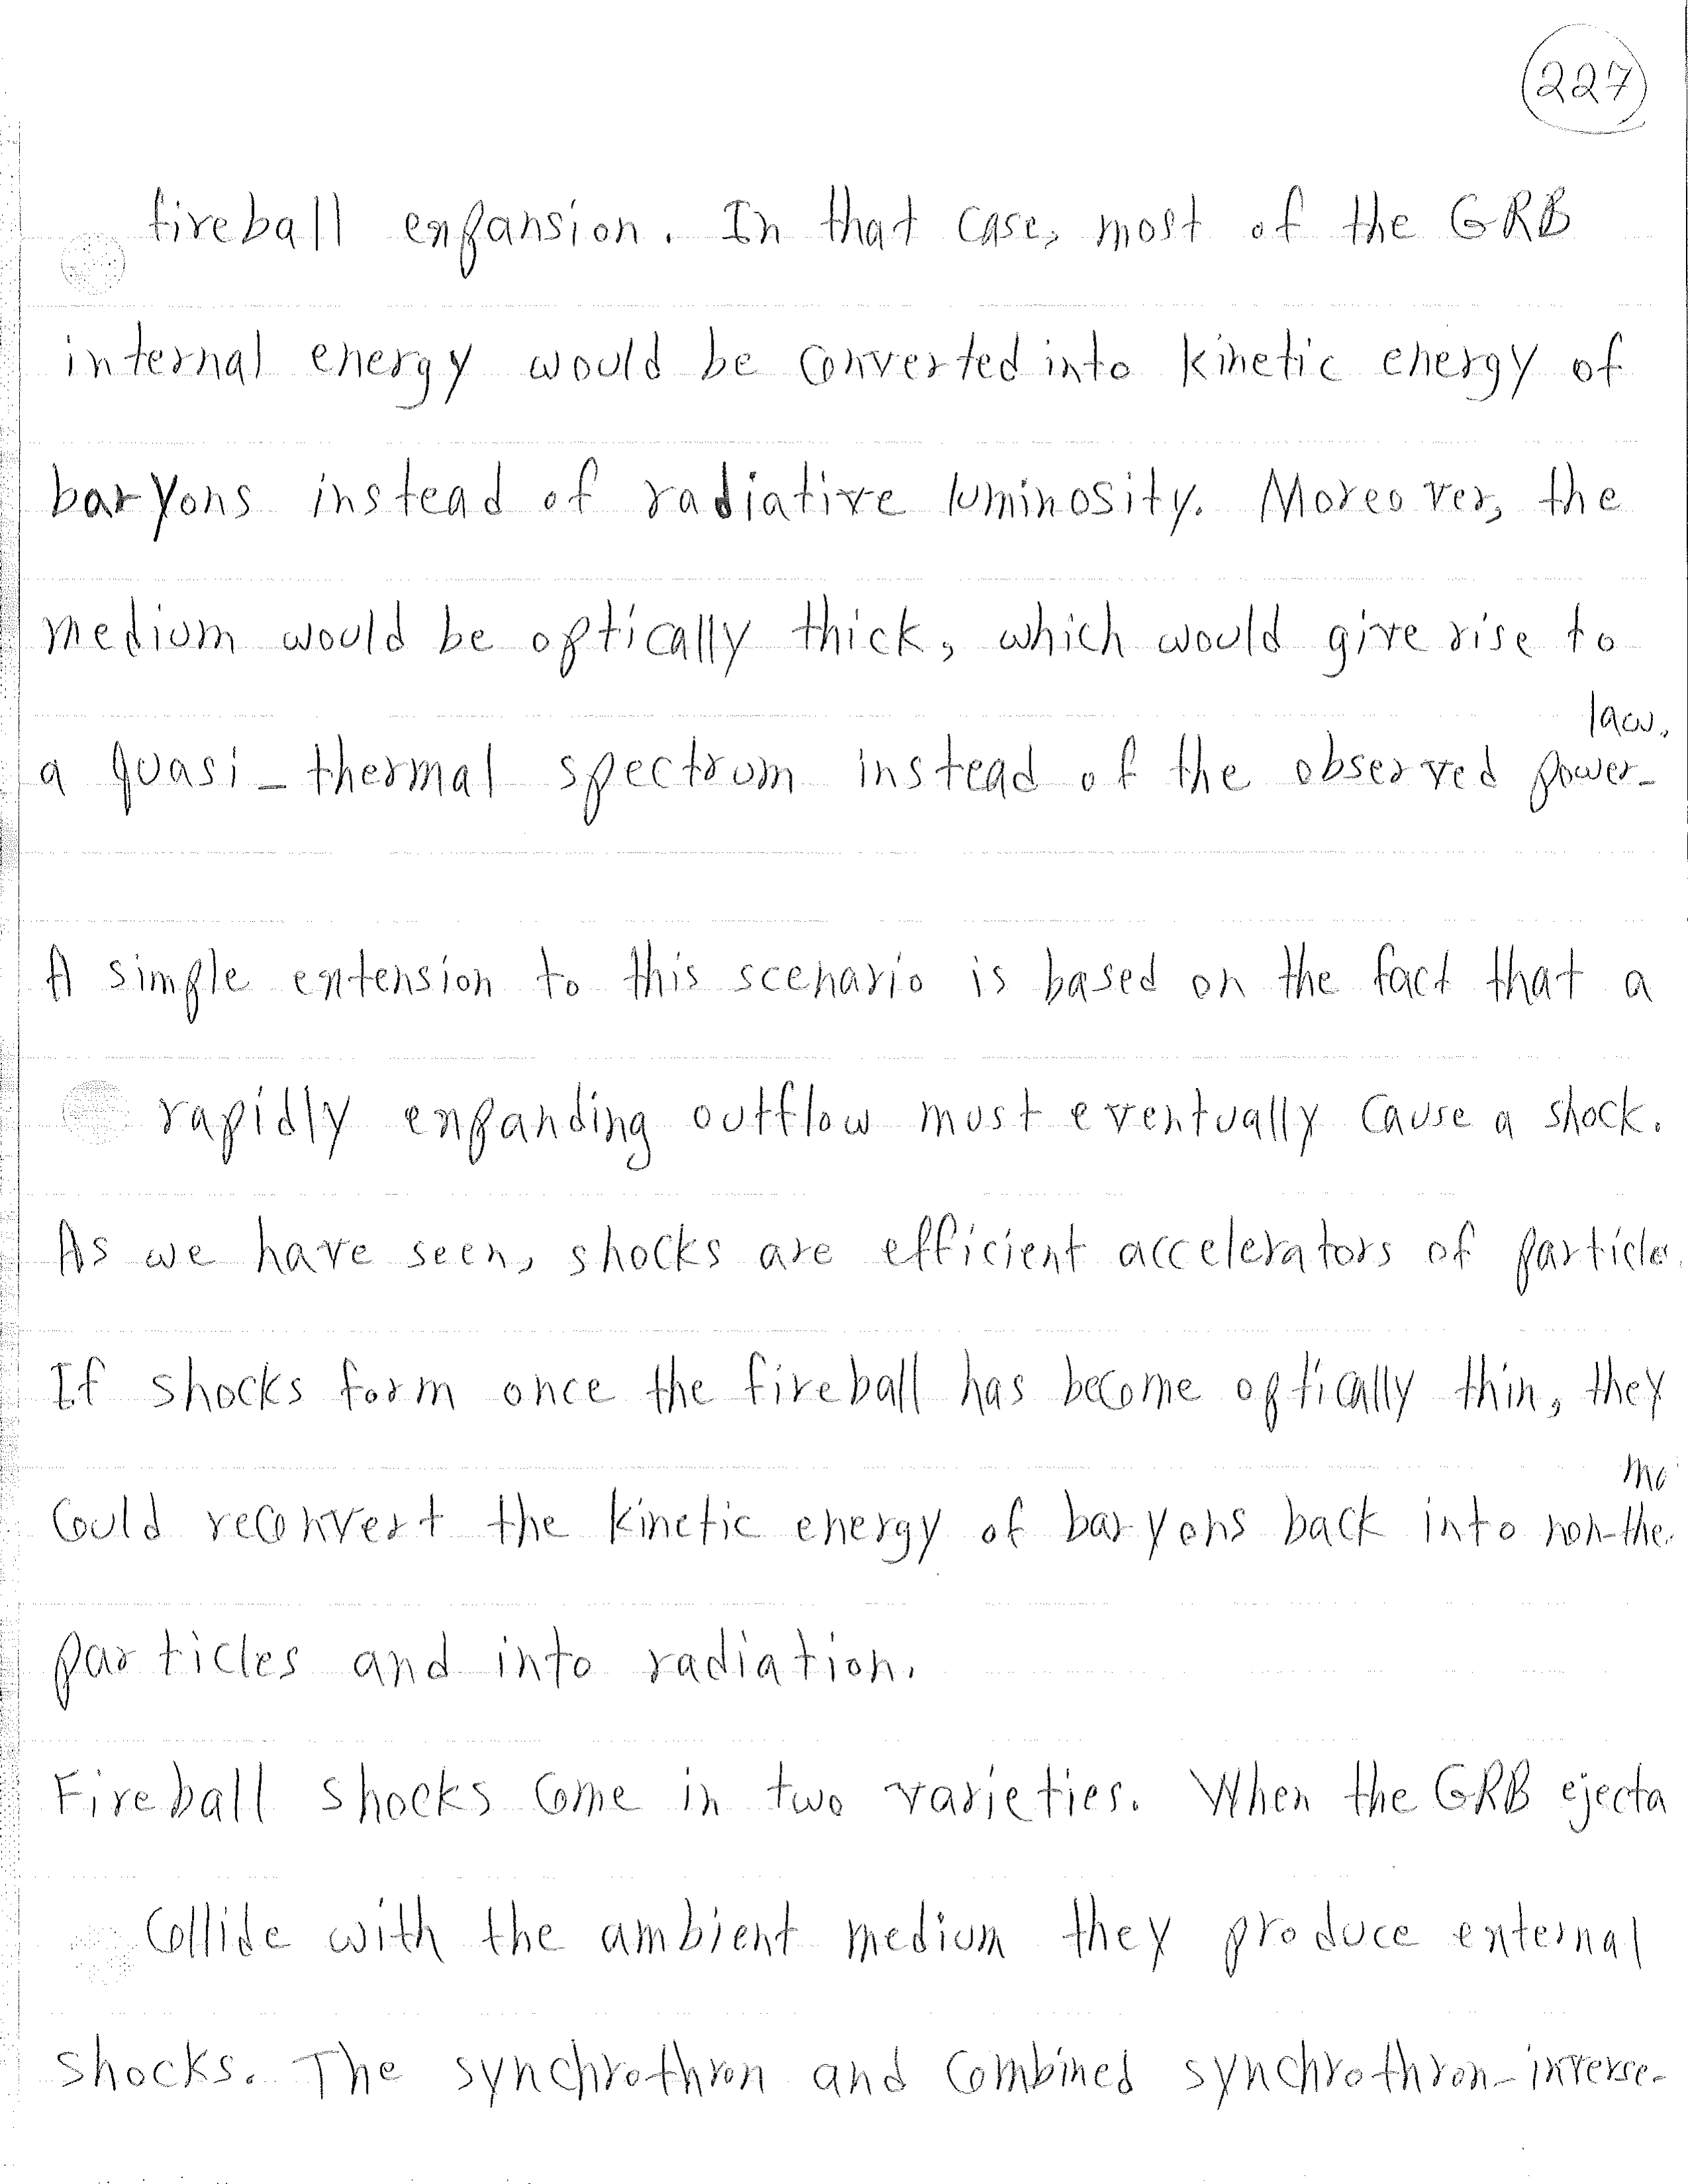 227
fireball expansion. In that case, most of the GRB
internal energy would be converted into kinetic energy of
baryons instead of radiative luminosity. Moreover, the
medium would be optically thick, which would give rise to
a quasi-thermal spectrum instead of the observed power-
law.
A simple extension to this scenario is based on the fact that a
rapidly expanding outflow must eventually cause a shock.
As we have seen, shocks are efficient accelerators of particle
If shocks form once the fireball has become optically thin, they
could reconvert the kinetic energy of baryons back into non-the
particles and into radiation.
Fireball shocks come in two varieties. When the GRB ejecta
collide with the ambient medium they produce external
shocks. The synchrothron and combined synchrothron-inverse-